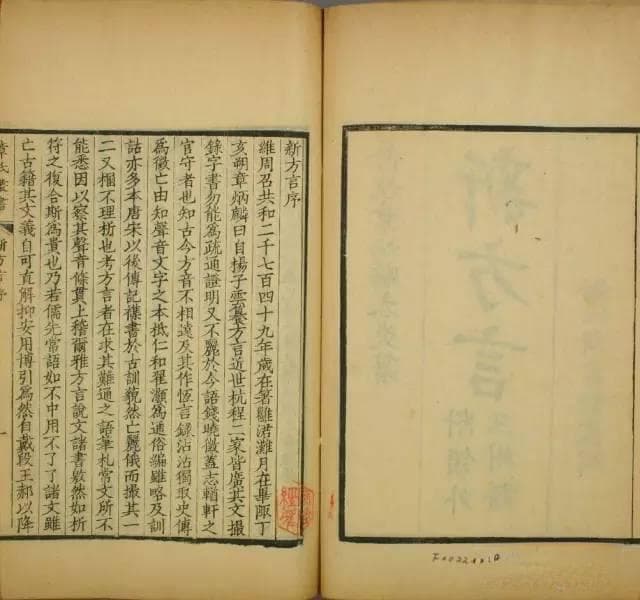 新方言
新方言序
維周召共和二千七百四十九年歲在箸雝涒灘月在畢陬丁
亥朔章炳麟曰自揚子雲纂方言近世杭程二家皆廣其文撮
錄字書勿能爲疏通證明又不麗於今語錢曉徵蓋志輶軒之
官守者也知古今方音不相遠及其作恆言錄沾沾獨取史傳
爲徵亡由知聲音文字之本柢仁和翟灝爲通俗編雖略及訓
詁亦多本唐宋以後傳記襍書於古訓藐然亡麗俄而撮其一
二又棞不理析也考方言者在求其難通之語筆札常文所不
能悉因以察其聲音條貫上稽爾雅方言說文諸書敫然如析
符之復合斯爲貴也乃若儒先常語如不中用不了了諸文雖
亡古籍其文義自可直解抑安用博引爲然自戴段王郝以降
章氏叢書 新方言序 一